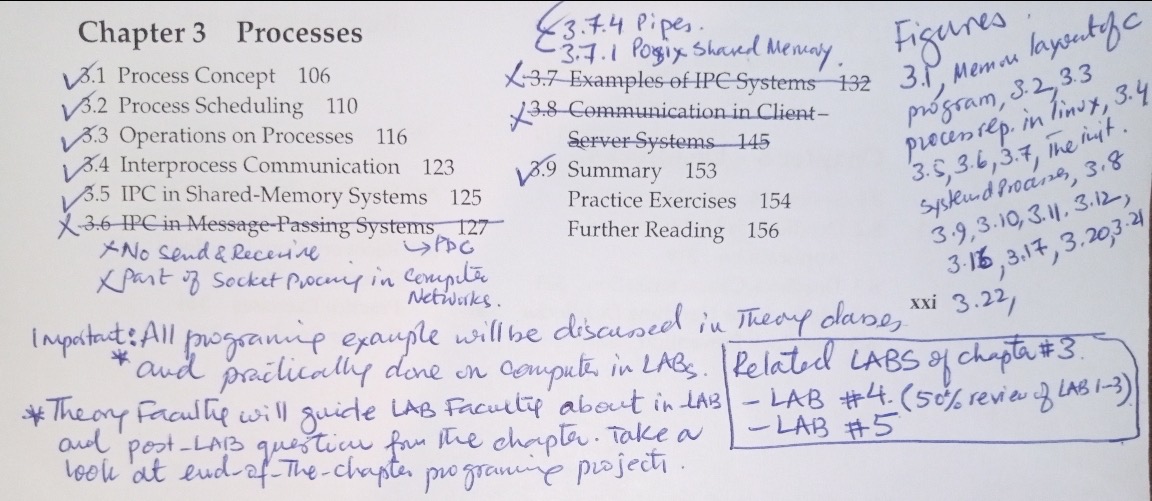 Chapter 3 Processes
3.1 Process Concept 106
3.2 Process Scheduling 110
3.3 Operations on Processes 116
3.4 Interprocess Communication 123
3.5 IPC in Shared-Memory Systems 125
3.6 IPC in Message-Passing Systems 127
→PDC
×No Send & Receive
×Part of Socket in Computer
Networks.
3.7.4 Pipes.
3.7.1 Posix Shared Memory.
3.7 Examples of IPC Systems 132
3.8 Communication in Client-
Server Systems 145
3.9 Summary 153
Practice Exercises 154
Further Reading 156
Figures
3.1, layout of C
program, 3.2, 3.3
process rep. in linux, 3.4
3.5, 3.6, 3.7, The init.
systemd 3.8
3.9, 3.10, 3.11, 3.12,
3.16, 3.17, 3.20, 3.21
xxi 3.22,
Important: All programing example will be discussed in Theory classes
* and practically done on Computer in LABs.
* Theory Faculty will guide LAB Faculty about in-LAB
and post-LAB question from the chapter. Take a
look at end-of-the-chapter programing projects.
Related LABS of chapter #3.
- LAB #4. (50% review of LAB 1-3)
- LAB #5